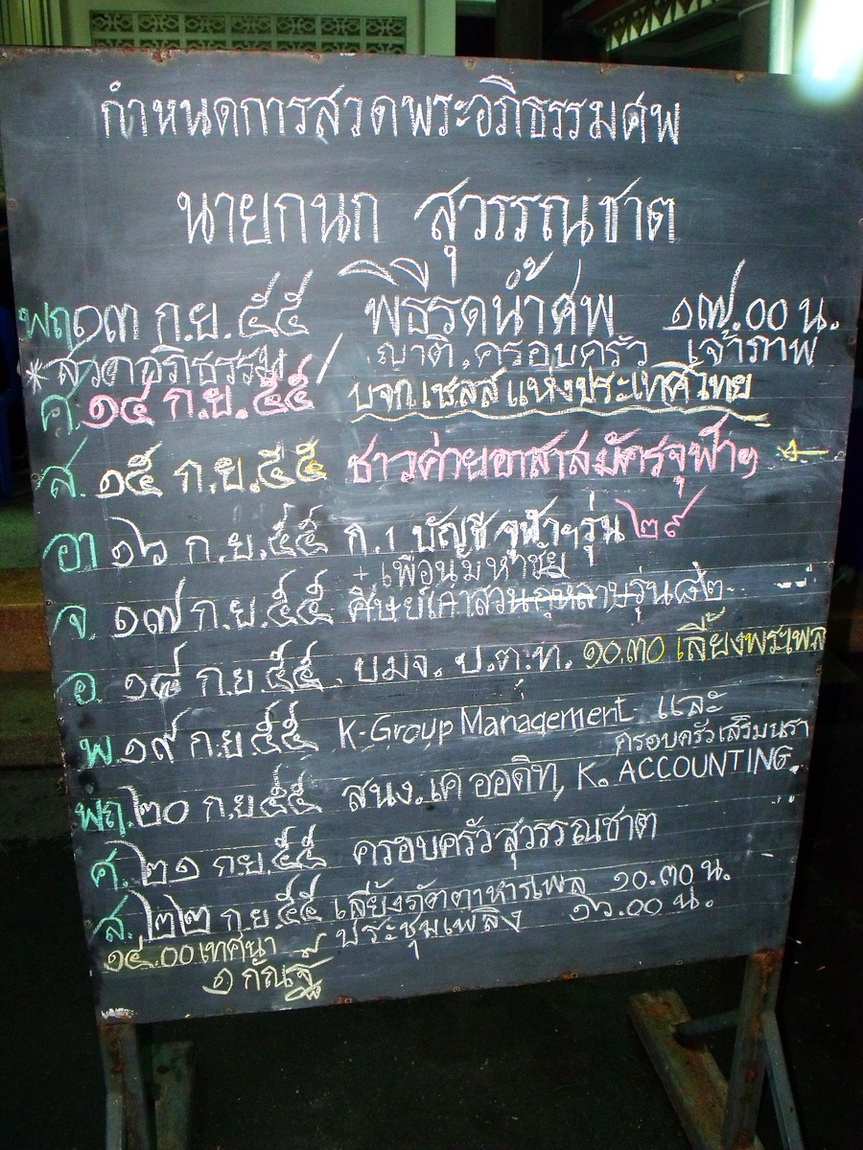 กำหนดการสวดพระอภิธรรมศพ
นายกนก สุวรรณชาต
พฤ ๑๓ ก.ย. ๕๕ พิธีรดน้ำศพ ๑๗.๐๐ น.
*สวดอภิธรรม / ญาติ, ครอบครัว เจ้าภาพ
ศ. ๑๔ ก.ย. ๕๕ บจก. เชลล์ แห่งประเทศไทย
ส. ๑๕ ก.ย. ๕๕ ชาวค่ายอาสาสมัครจุฬาฯ
อา ๑๖ ก.ย. ๕๕ ก.๑ บัญชี จุฬาฯ รุ่น ๒๙
+ เพื่อน
จ. ๑๗ ก.ย. ๕๕ ศิษย์เก่าสวนกุหลาบรุ่น ๘๒
อ. ๑๘ ก.ย. ๕๕ บมจ. ป.ต.ท. ๑๐.๓๐ เลี้ยงพระเพล
พ. ๑๙ ก.ย. ๕๕ K-Group Management และ
ครอบครัวเสริมนรา
พฤ. ๒๐ ก.ย. ๕๕ สนง. เค ออดิท, K. ACCOUNTING.
ศ. ๒๑ ก.ย. ๕๕ ครอบครัวสุวรรณชาต
ส. ๒๒ ก.ย. ๕๕ เลี้ยงภัตตาหารเพล ๑๐.๓๐ น.
๑๔.๐๐ เทศนา ประชุมเพลิง ๑๖.๐๐ น.
๑ กัณฐ์